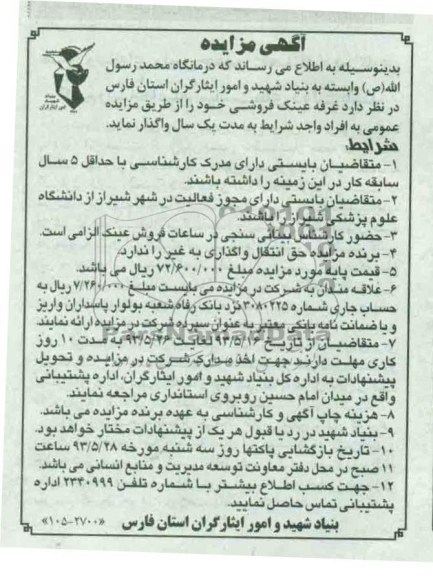 آگهی مزایده
بنیاد شهید و امور ایثارگران
بدینوسیله به اطلاع می رساند که درمانگاه محمد رسول
الله(ص) وابسته به بنیاد شهید و امور ایثارگران استان فارس
در نظر دارد غرفه عینک فروشی خود را از طریق مزایده
عمومی به افراد واجد شرایط به مدت یک سال واگذار نماید.
شرایط:
۱- متقاضیان بایستی دارای مدرک کارشناسی با حداقل ۵ سال
سابقه کار در این زمینه را داشته باشند.
۲- متقاضیان بایستی دارای مجوز فعالیت در شهر شیراز از دانشگاه
علوم پزشکی شیراز را باشند.
۳- حضور کارشناس بینائی سنجی در ساعات فروش عینک الزامی است.
۴- برنده مزایده حق انتقال واگذاری به غیر را ندارد.
۵- قیمت پایه مورد مزایده مبلغ ۷۲/۶۰۰/۰۰۰ ریال می باشد.
۶- علاقه مندان به شرکت در مزایده می بایست مبلغ ۷/۲۶۰/۰۰۰ ریال به
حساب جاری شماره ۳۰۸۰۲۲۵ نزد بانک رفاه شعبه بولوار پاسداران واریز
و یا ضمانت نامه بانکی معتبر به عنوان سپرده شرکت در مزایده ارائه نمایند.
۷- متقاضیان از تاریخ ۹۳/۵/۱۶ لغایت ۹۳/۵/۲۶ به مدت ۱۰ روز
کاری مهلت دارند جهت اخذ مدارک شرکت در مزایده و تحویل
پیشنهادات به اداره کل بنیاد شهید و امور ایثارگران، اداره پشتیبانی
واقع در میدان امام حسین روبروی استانداری مراجعه نمایند.
۸- هزینه چاپ آگهی و کارشناسی به عهده برنده مزایده می باشد.
۹- بنیاد شهید در رد یا قبول هر یک از پیشنهادات مختار خواهد بود.
۱۰- تاریخ بازگشایی پاکتها روز سه شنبه مورخه ۹۳/۵/۲۸ ساعت
۱۱ صبح در محل دفتر معاونت توسعه مدیریت و منابع انسانی می باشد.
۱۲- جهت کسب اطلاع بیشتر با شماره تلفن ۲۳۴۰۹۹۹ اداره
پشتیبانی تماس حاصل نمایید.
بنیاد شهید و امور ایثارگران استان فارس «۱۰۵-۲۷۰۰»